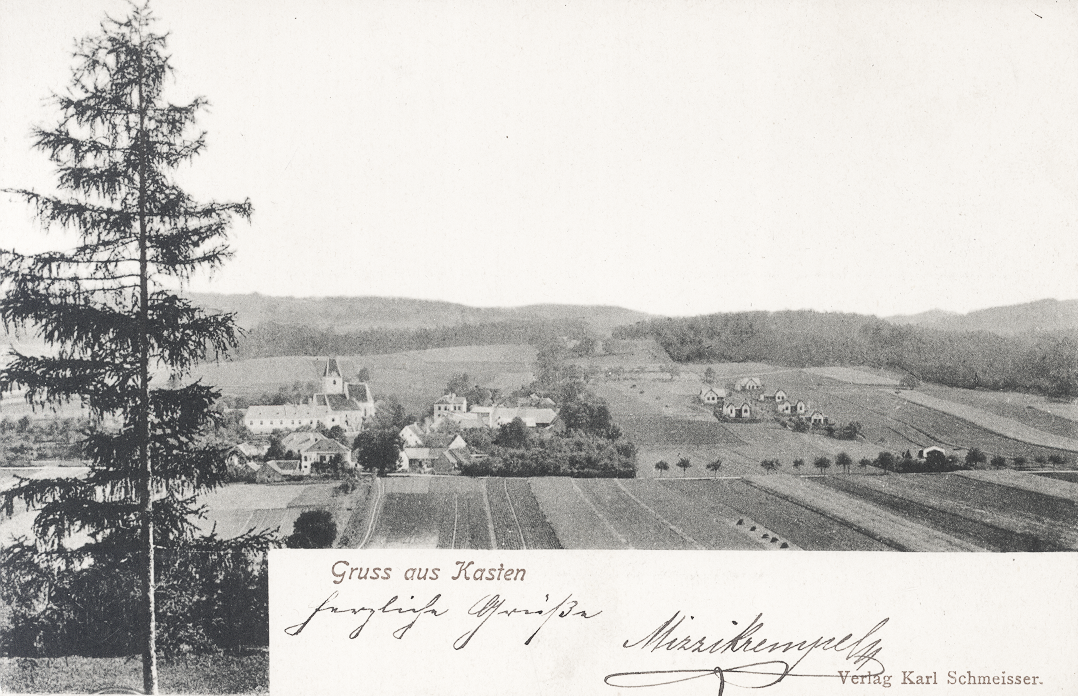 Gruss aus Kasten
herzliche Grüße
Mizzikrempel
Verlag Karl Schmeisser.